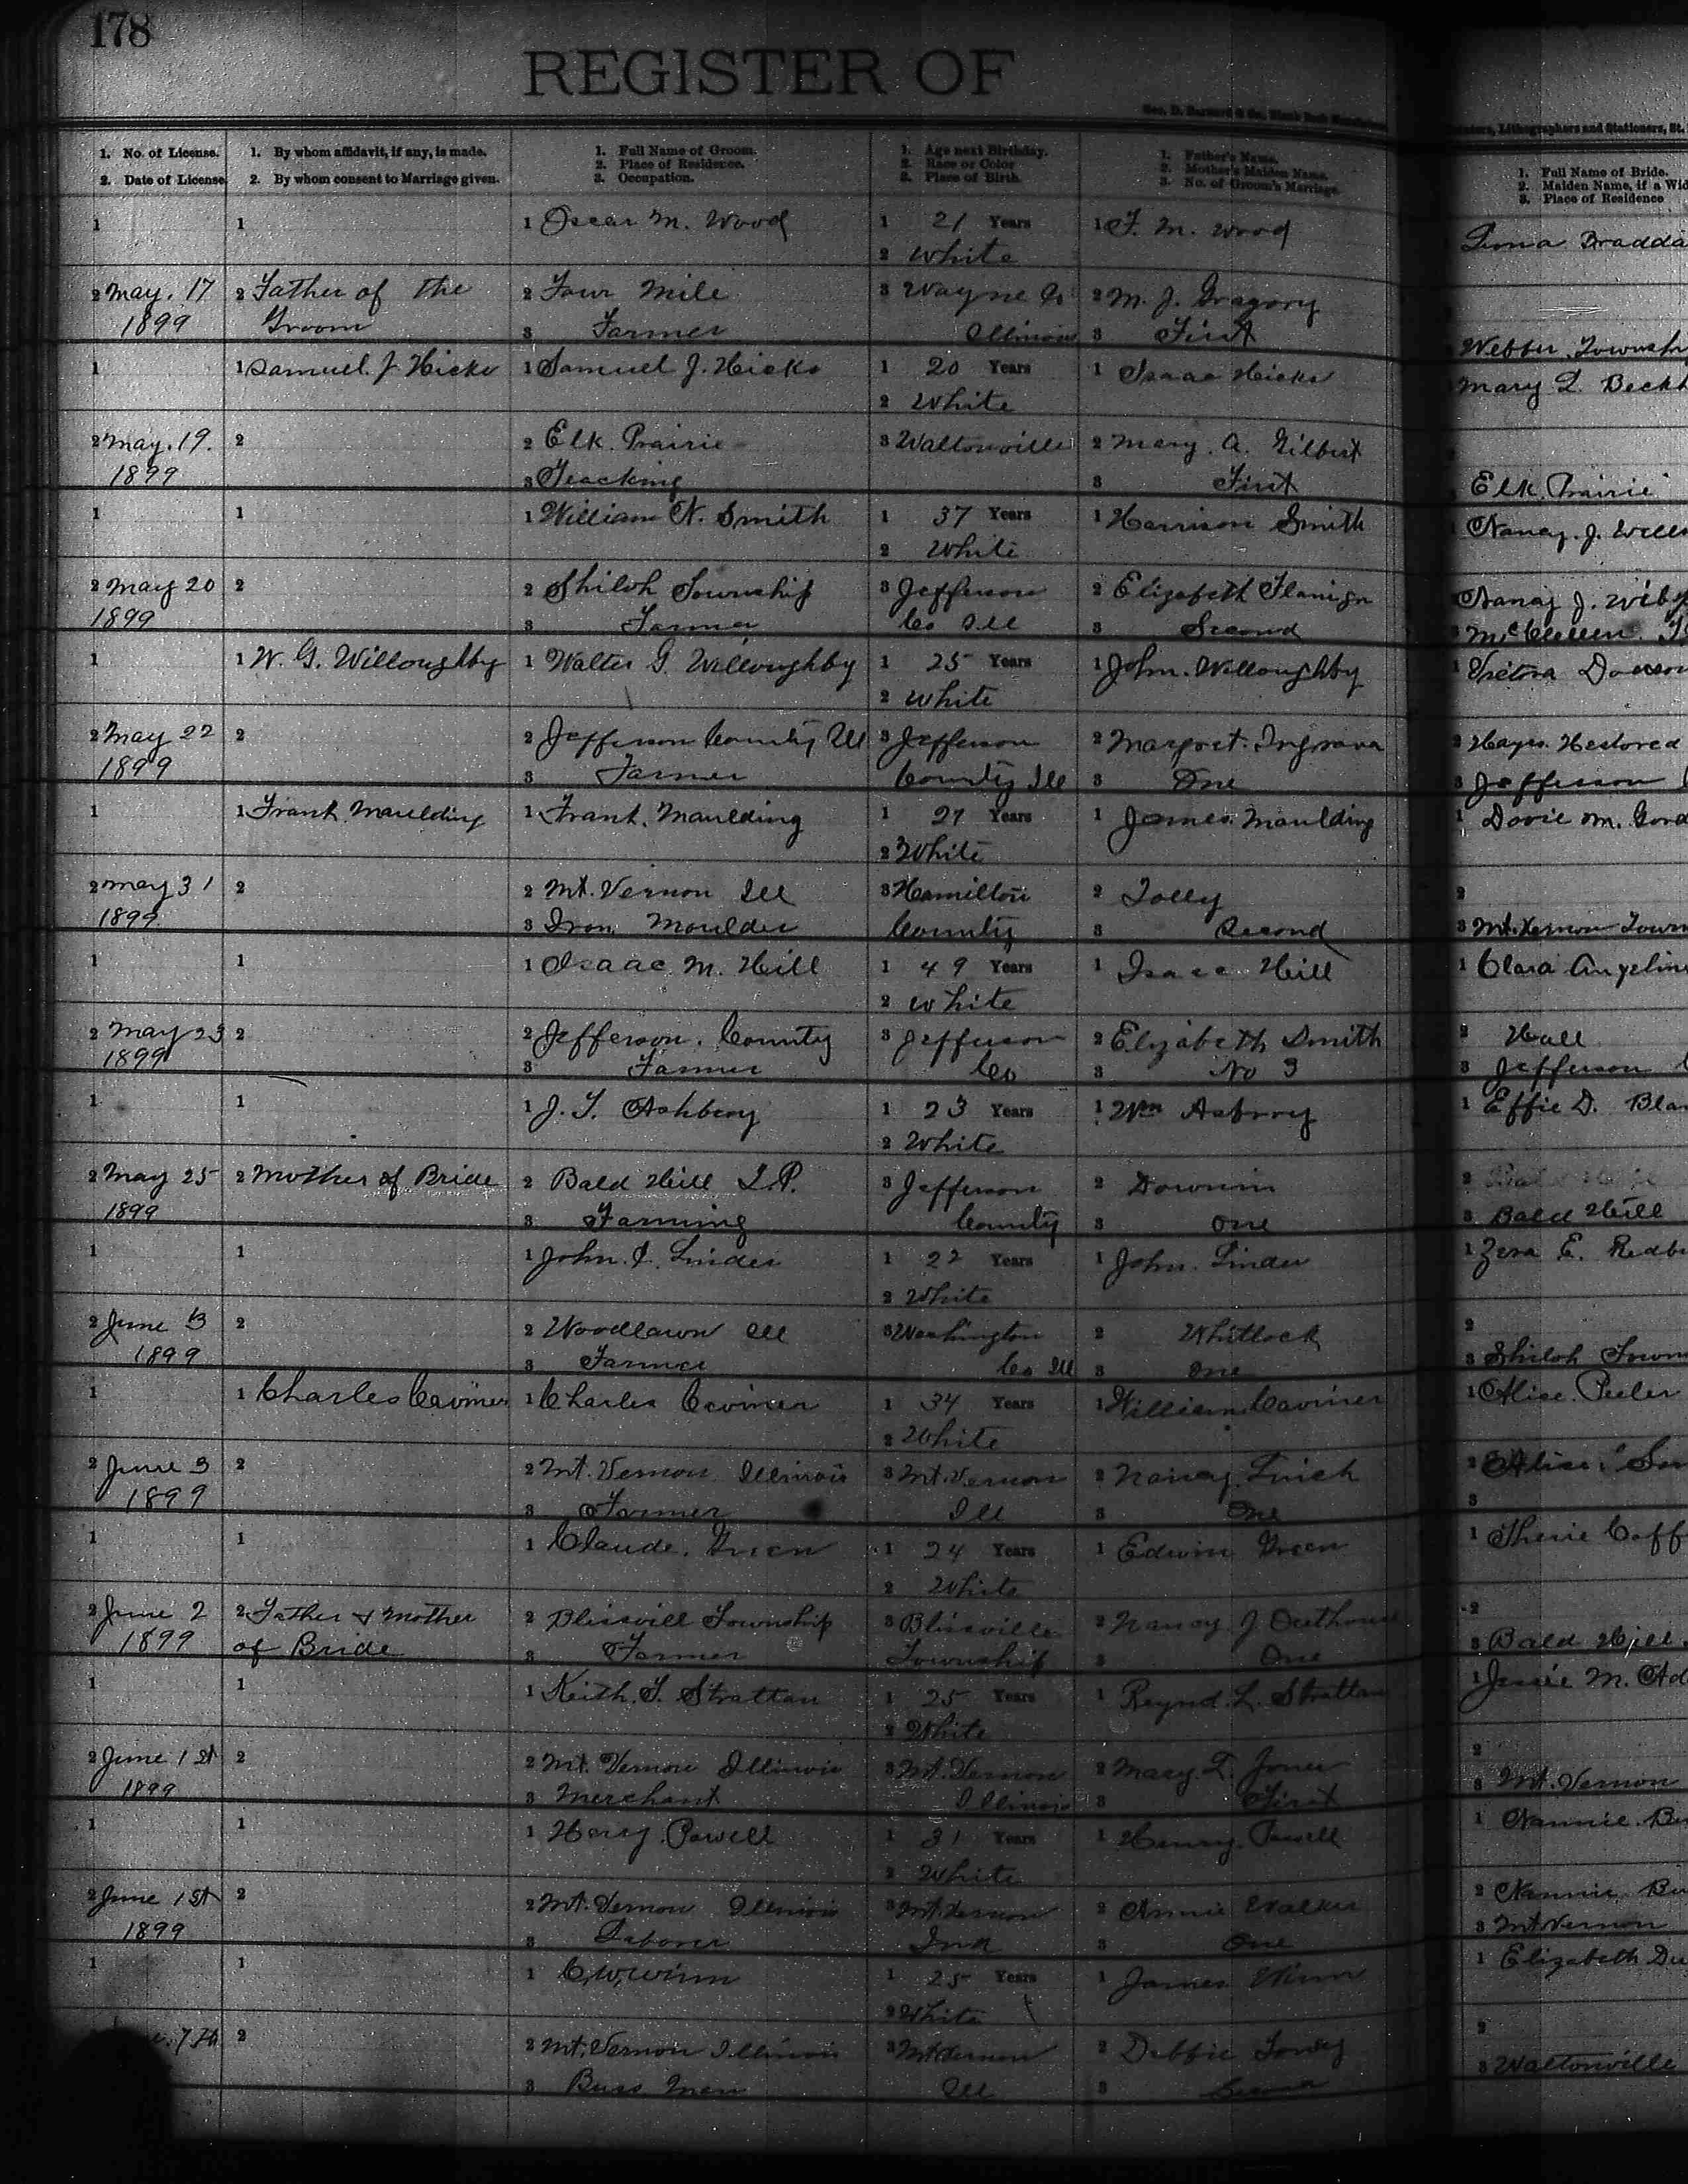 178
REGISTER OF
Geo. D. Barnard & Co., Blank Book
Lithographers and Stationers, St.
1. No. of License.
2. Date of License
1. By whom affidavit, if any, is made.
2. By whom consent to Marriage given.
1. Full Name of Groom.
2. Place of Residence.
3. Occupation.
1. Age next Birthday.
2. Race or Color
3. Place of Birth.
1. Father's Name.
2. Mother's Maiden Name.
3. No. of Groom's Marriage.
1. Full Name of Bride.
2. Maiden Name, if a Wid
3. Place of Residence
1 1 1 Oscar M. Wood 1 21 Years 1 F. M. Wood
2 White
2 May. 17 2 Father of the 2 Four Mile 3 Wayne Co 2 M. J. Gragory
1899 Groom 3 Farmer Illinois 3 First
Webber Townsh
1 1 Samuel J Hicks 1 Samuel J. Hicks 1 20 Years 1 Isaac Hicks Mary L. Beckh
2 White
2 May. 19. 2 2 Elk Prairie 3 Waltonville 2 Mary. A. Gilbert
1899 3 Teaching 3 First Elk Prairie
1 1 1 William N. Smith 1 37 Years 1 Harrison Smith 1 Nancy. J.
2 White
2 May 20 2 2 Shiloh Township 3 Jefferson 2 Elizabeth Flanign Nancy J.
1899 3 Farmer Co Ill 3 Second
1 1 W. G. Willoughby 1 Walter G. Willoughby 1 25 Years 1 John. Willoughby 1
2 White
2 May 22 2 2 Jefferson County Ill 3 Jefferson 2
1899 3 Farmer County Ill 3 One 3 Jefferson
1 1 Frank Maulding 1 Frank. Maulding 1 27 Years 1 James. Maulding 1 Dovie M. Gord
2 White
2 May 31 2 2 Mt. Vernon Ill 3 Hamilton 2 Jolly 2
1899 3 Iron Moulder County 3 Second 3 Mt. Vernon Town
1 1 1 Isaac M. Hill 1 49 Years 1 Isaac Hill 1 Clara Angeline
2 White
2 May 23 2 2 Jefferson. County 3 Jefferson 2 Elizabeth Smith 2 Hall
1899 3 Farmer Co 3 No 3 3 Jefferson
1 1 1 J. T. Ashbery 1 23 Years 1 Wm Asbrry 1 Effie D. Blan
2 White
2 May 25 2 Mother of Bride 2 Bald Hill T.P. 3 Jefferson 2 Downin 2
1899 3 Farming County 3 One 3 Bald Hill
1 1 1 John. J. Linder 1 22 Years 1 John. Linder 1 Zena E. Redb
2 White
2 June 3 2 2 Woodlawn Ill 3 Washington 2 Whitlock 2
1899 3 Farmer Co Ill 3 One 3 Shiloh Town
1 1 Charles Caviner 1 Charles Caviner 1 34 Years 1 William Caviner 1 Alise. Peeler
2 White
2 June 3 2 2 Mt. Vernon Illinois 3 Mt. Vernon 2 Nancy 2 Alise
1899 3 Farmer Ill 3 One 3
1 1 1 Claude. Green 1 24 Years 1 Edwin Green 1 Coff
2 White
2 June 2 2 Father & Mother 2 Blissvill Township 3 Blissville 2 Nancy J Outhouse 2
1899 of Bride 3 Farmer Township 3 One 3 Bald Hill.
1 1 1 Keith. T. Strattan 1 25 Years 1 Reynd. L. Strattan 1 Jessie M. Ad
2 White
2 June 1st 2 2 Mt. Vernon Illinois 3 Mt. Vernon 2 Mary. L. Jones 2
1899 3 Merchant Illinois 3 First 3 Mt. Vernon
1 1 1 Harry. Powell 1 31 Years 1 Henry. Powell 1 Nannie. Bu
2 White
2 June 1st 2 2 Mt. Vernon Illinois 3 Mt. Vernon 2 Annie Walker 2 Nannie Bu
1899 3 Laborer Ind 3 One 3 Mt Vernon
1 1 1 C. W. Winn 1 25 Years 1 James Winn 1 Elizabeth Du
2 White
7th 2 2 Mt. Vernon Illinois 3 Mt Vernon 2 Debbie 2
3 Buss Man Ill 3 3 Waltonville